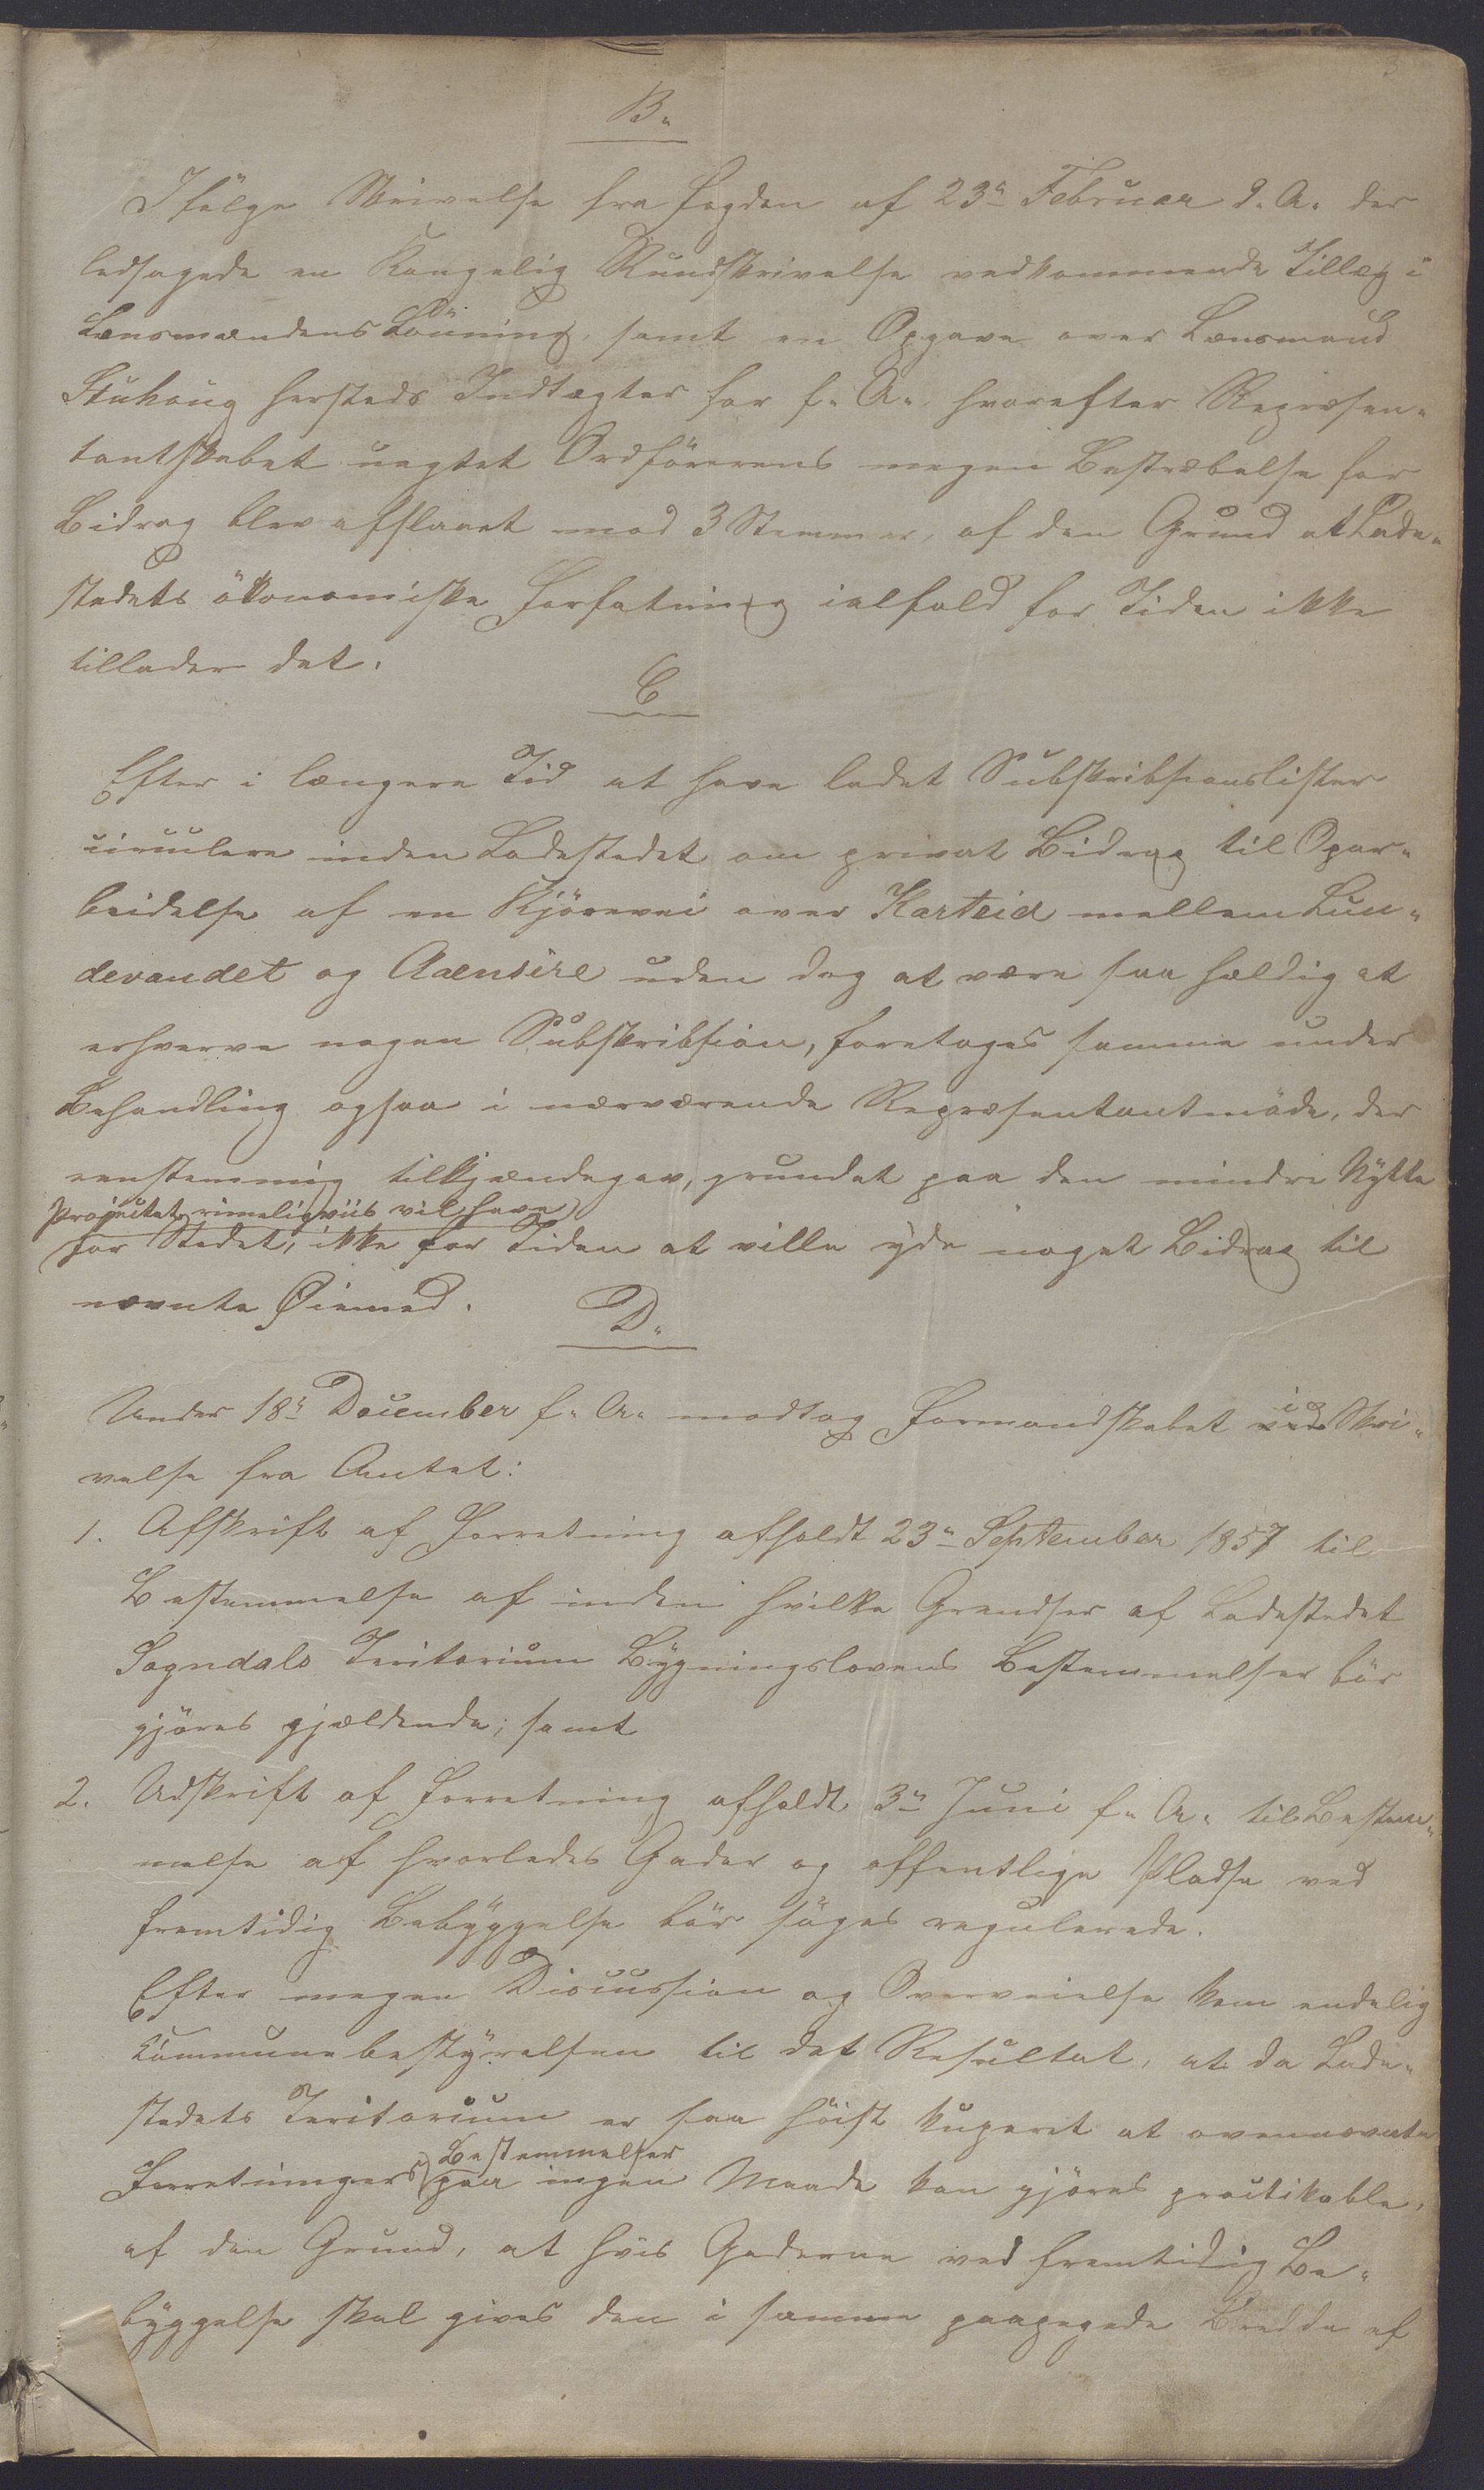 3
B.
Ifölge Skrivelse fra Fogden af 23de Februar d. A. der
ledsagede en Kongelig Rundskrivelse vedkommende Tillæg i
Lensmændens Lönning, samt en Opgave over Lensmand
Stuhoug hersteds Indtægter for f. A. hvorefter Repræsen-
tantskabet uagtet Ordförerens megen Bestræbelse for
Bidrag blev afslaaet mod 3 Stemmer, af den Grund at Lade-
stedets ökonomiske Forfatning ialfald for Tiden ikke
tillader det.
C
Efter i længere Tid at have ladet Subskribsionslister
circulere inden Ladestedet om privat Bidrag til Opar-
beidelse af en Kjörevei over Karteid mellem Lun-
devandet og Aaensire uden dog at være saa heldig at
erhverve nogen Subskribsion, foretoges samme under
Behandling ogsaa i nærværende Repræsentantmöde, der
eenstemmig tilkjændegav, grundet paa den mindre Nytte
Projectet rimeligviis vil have
for Stedet, ikke for Tiden at ville yde noget Bidrag til
nævnte Øiemed.
D.
Under 18de December f. A. modtog Formandskabet ved i Skri-
velse fra Amtet:
1. Afskrift af Forretning afholdt 23de September 1857 til
Bestemmelse af inden hvilke Grendser af Ladestedet
Sogndals Teritorium Bygningslovens Bestemmelser bör
gjöres gjældende; samt
2. Udskrift af Forretning afholdt 3de Juni f. A. til Bestem-
melse af hvorledes Gader og offentlige Pladse ved
fremtidig Bebyggelse bör söges regulerede.
Efter megen Discussion og Overveielse kom endelig
Kommunebestyrelsen til det Resultat, at da Lade-
stedets Teritorium er saa höist kuperet at ovennævnte
Bestemmelser
Forretningers paa ingen Maade kan gjöres practikable,
af den Grund, at hvis Gaderne ved fremtidig Be-
byggelse skal gives den i samme paapegede Bredde af